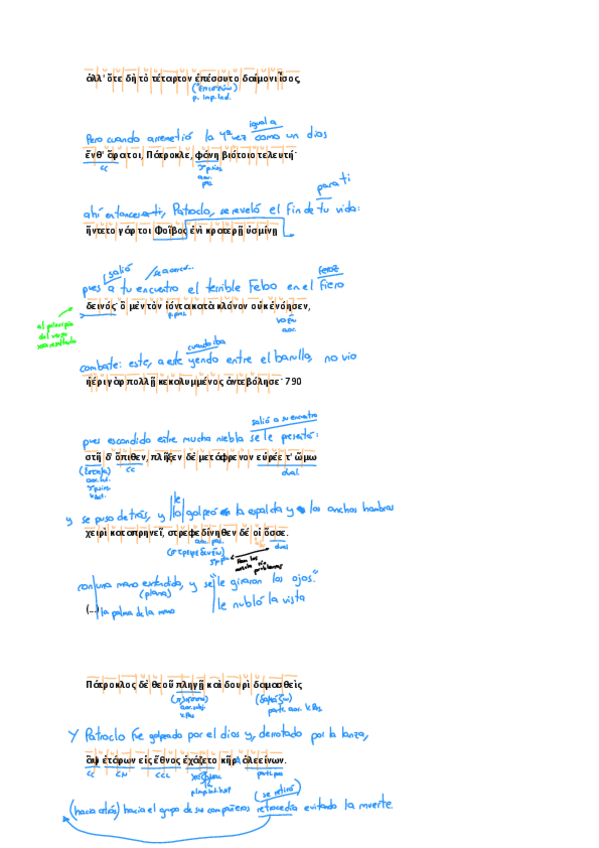 ἀλλ' ὅτε δὴ τὸ τέταρτον ἐπέσσυτο δαίμονι ἶσος,
p. Imp. Ind.
igual a
Pero cuando arremetió la 4ª vez como un dios
ἔνθ' ἄρα τοι, Πάτροκλε, φάνη βιότοιο τελευτή·
cc
aor.
para ti
ahí entonces ti, Patroclo, se reveló el fin de tu vida:
ἤντετο γάρ τοι Φοῖβος ἐνὶ κρατερῇ ὑσμίνῃ
salió
feroz
pues a tu encuentro el terrible Febo en el fiero
δεινός· ὃ μὲν τὸν ἰόντα κατὰ κλόνον οὐκ ἐνόησεν,
p. pres.
aor.
al principio
del verso
cuando iba
combate: este, a este yendo entre el barullo, no vio
ἠέρι γὰρ πολλῇ κεκαλυμμένος ἀντεβόλησε· 790
salió a su encuentro
pues escondido entre mucha niebla se le presentó:
στῆ δ' ὄπιθεν, πλῆξεν δὲ μετάφρενον εὐρέε τ' ὤμω
cc
dual
le
y se puso detrás, y lo golpeó la espalda y los anchos hombros
χειρὶ καταπρηνεῖ, στρεφεδίνηθεν δέ οἱ ὄσσε.
aor. pas.
dual
con una mano extendida, y se "le giraron los ojos."
(plana)
le nubló la vista
(...)
la palma de la mano
Πάτροκλος δὲ θεοῦ πληγῇ καὶ δουρὶ δαμασθεὶς
(δαμάζω)
part. aor. v. Pas.
Y Patroclo fue golpeado por el dios y, derrotado por la lanza,
ἂψ ἑτάρων εἰς ἔθνος ἐχάζετο κῆρ' ἀλεείνων.
cc
CN
CCL
(se retiró)
(hacia atrás) hacia el grupo de sus compañeros retrocedía evitando la muerte.